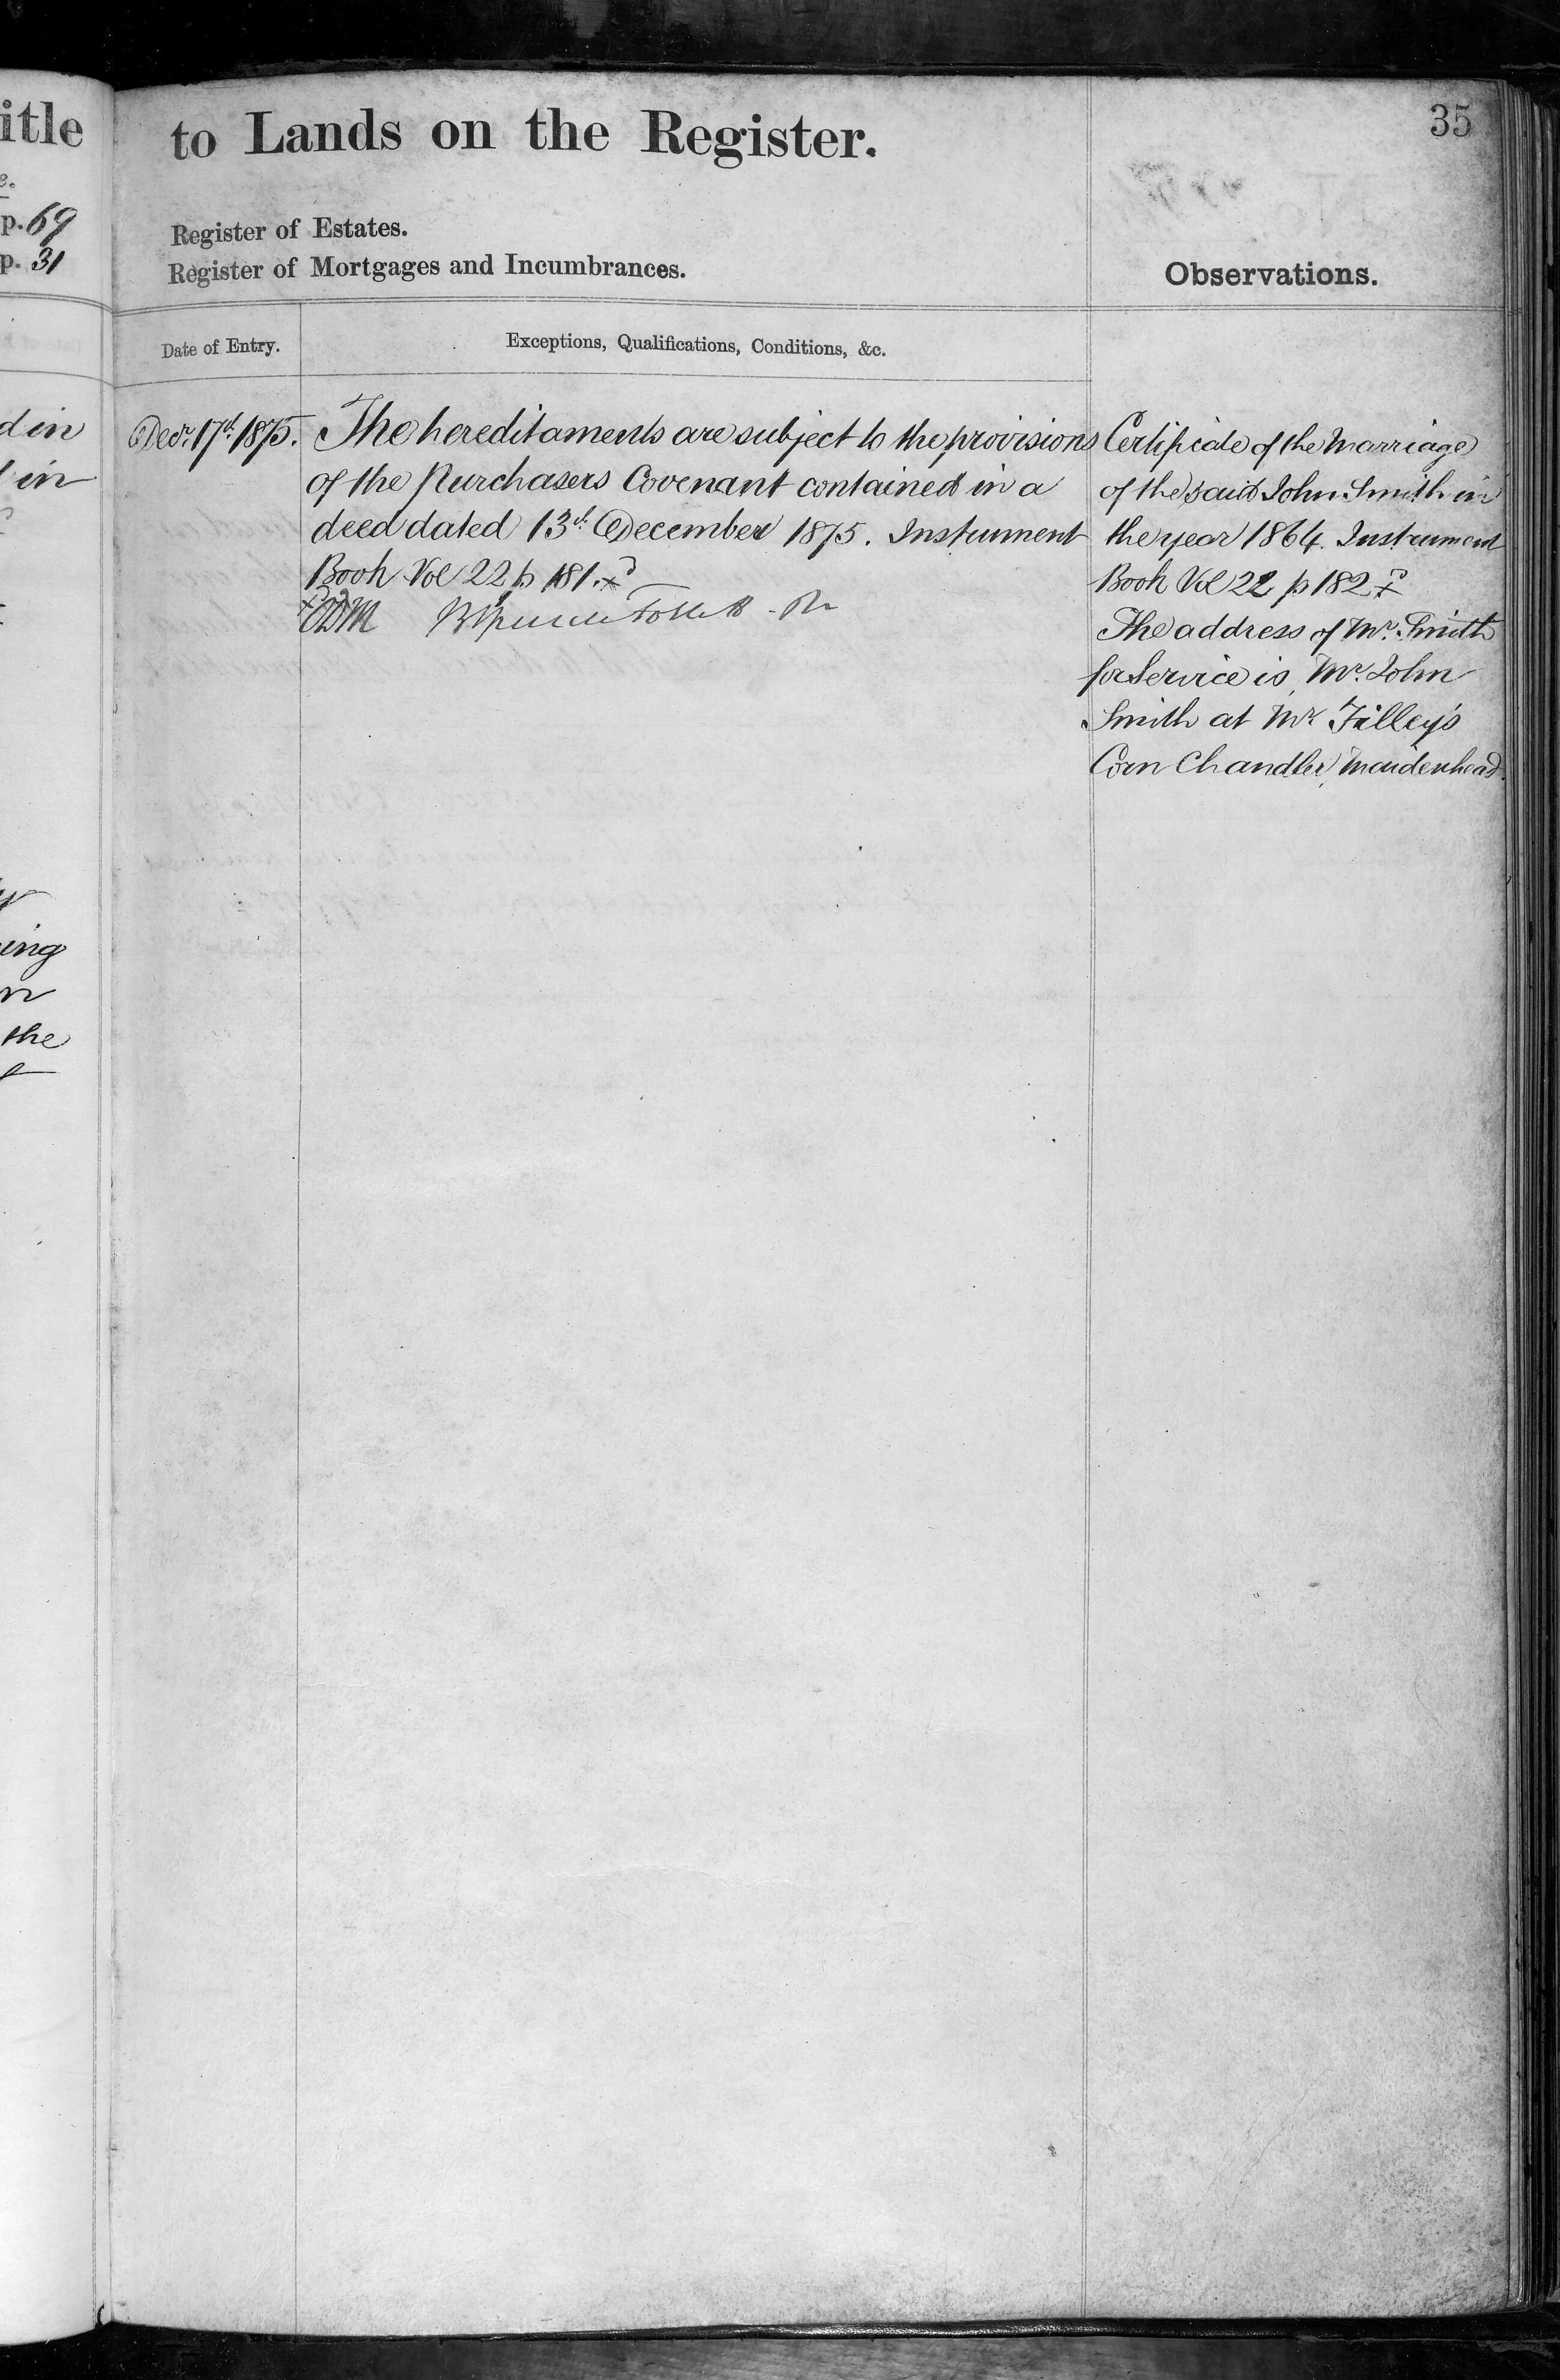 itle
e.
p. 69
p. 31
d in
in
ing
the
35
to Lands on the Register.
Register of Estates.
Register of Mortgages and Incumbrances.
Observations.
Date of Entry.
Exceptions, Qualifications, Conditions, &c.
Decr. 17th 1875.
The hereditaments are subject to the provisions
of the Purchasers Covenant contained in a
deed dated 13th December 1875. Instrument
Book Vol 22 p 181.
Follett
Certificate of the Marriage
of the said John Smith in
the year 1864. Instrument
Book Vol 22 p 182
The address of Mr. Smith
for Service is, Mr. John
Smith at Mr. Tilley's
Corn Chandler, Maidenhead.